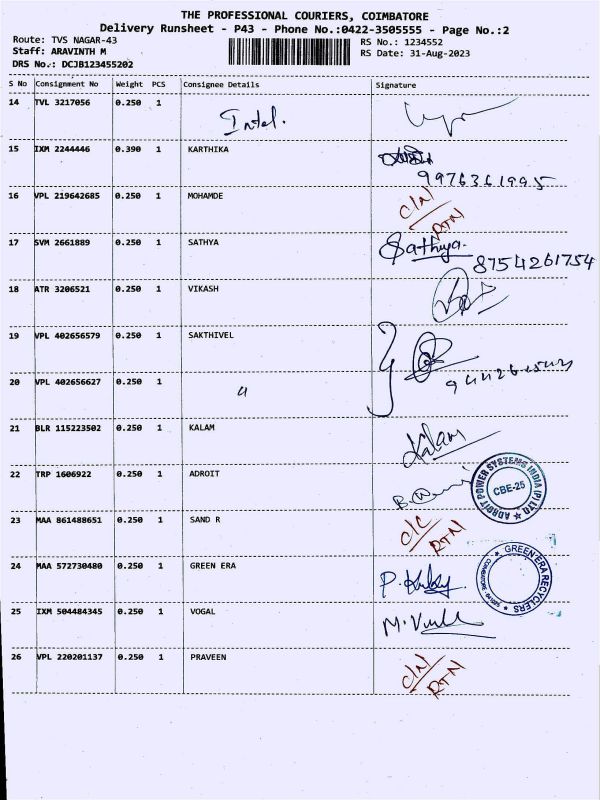 THE PROFESSIONAL COURIERS, COIMBATORE
Delivery Runsheet - P43 - Phone No.:0422-3505555 - Page No.:2
Route: TVS NAGAR-43 RS No.: 1234552
Staff: ARAVINTH M RS Date: 31-Aug-2023
DRS No.: DCJB123455202
S No Consignment No Weight PCS Consignee Details Signature
14 TVL 3217056 0.250 1 Intel.
15 IXM 2244446 0.390 1 KARTHIKA
9976361995
16 VPL 219642685 0.250 1 MOHAMDE C/N
RTN
17 SVM 2661889 0.250 1 SATHYA Sathiya.
8754261754
18 ATR 3206521 0.250 1 VIKASH
19 VPL 402656579 0.250 1 SAKTHIVEL
20 VPL 402656627 0.250 1 "
21 BLR 115223502 0.250 1 KALAM Kalam
22 TRP 1606922 0.250 1 ADROIT
ADROIT POWER SYSTEMS INDIA (P) LTD
CBE-25
23 MAA 861488651 0.250 1 SAND R C/C
RTN
24 MAA 572730480 0.250 1 GREEN ERA
GREEN ERA RECYCLERS
25 IXM 504484345 0.250 1 VOGAL
26 VPL 220201137 0.250 1 PRAVEEN C/N
RTN